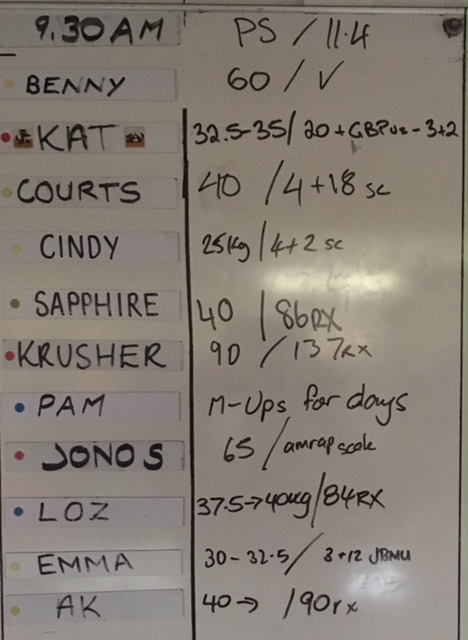 9.30AM PS / 11.4
BENNY 60 / √
KAT 32.5-35/ 20 + GBPUs - 3+2
COURTS 40 / 4 + 18 sc
CINDY 25kg / 4+2 sc
SAPPHIRE 40 / 86RX
KRUSHER 90 / 137RX
PAM M-Ups for days
JONOS 65 / amrap scale
LOZ 37.5→40kg/84RX
EMMA 30-32.5 / 3+12 JBMU
AK 40→ /90rx